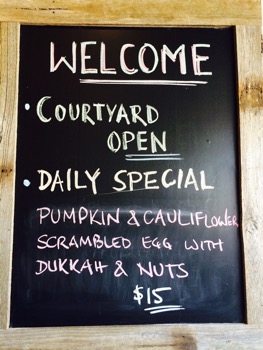 WELCOME
• COURTYARD
OPEN
• DAILY SPECIAL
PUMPKIN & CAULIFLOWER
SCRAMBLED EGG WITH
DUKKAH & NUTS
$15